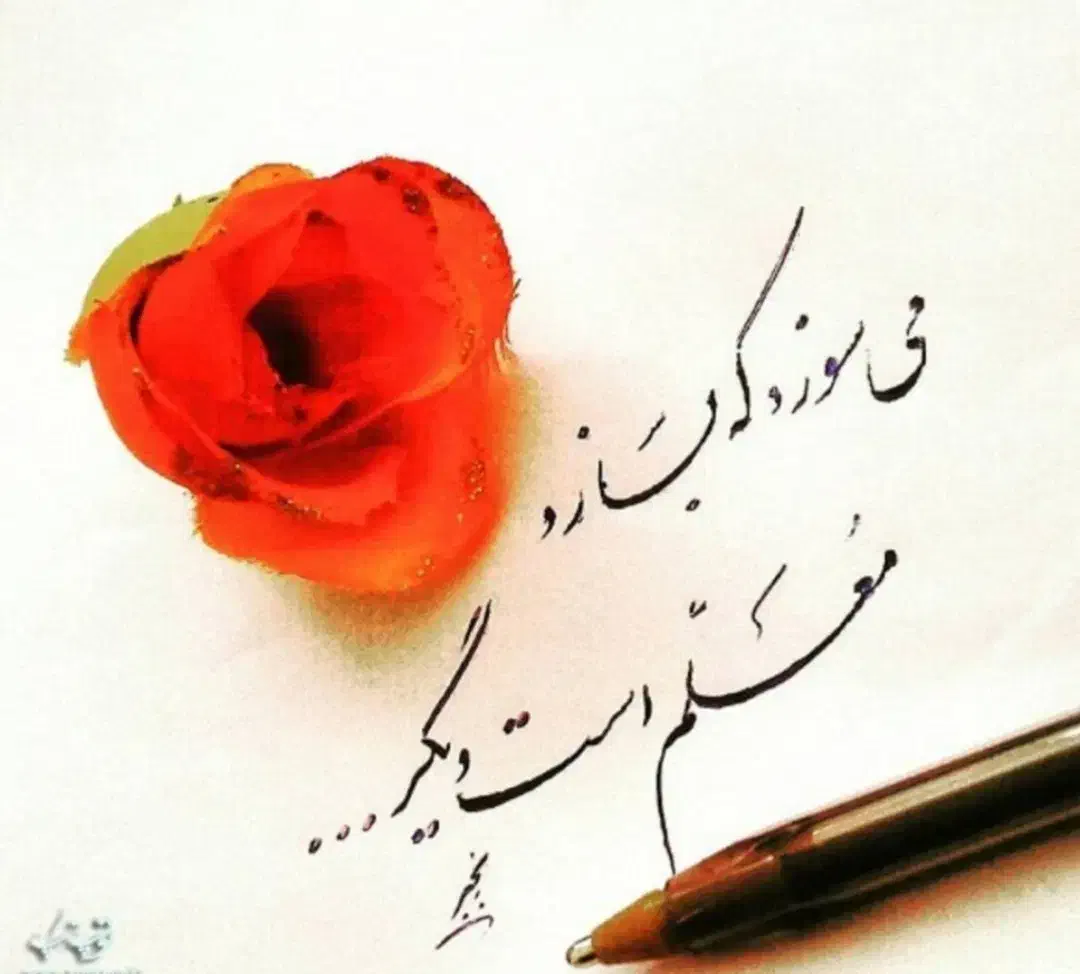 می سوزد که بسازد
معلّم است دیگر...